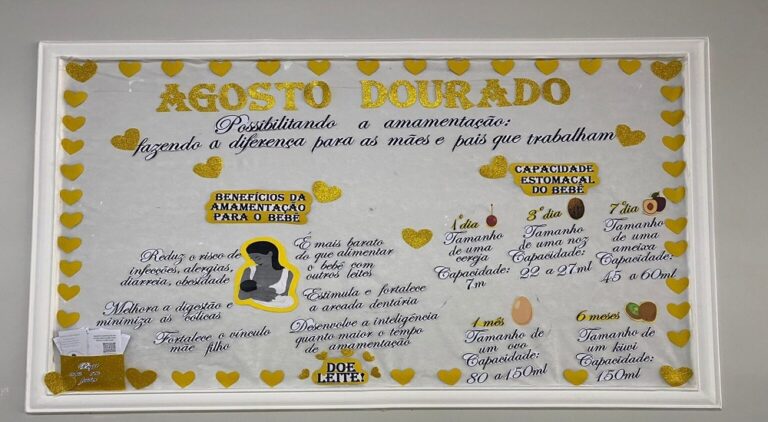 AGOSTO DOURADO
Possibilitando a amamentação:
fazendo a diferença para as mães e pais que trabalham
BENEFÍCIOS DA
AMAMENTAÇÃO
PARA O BEBÊ
Reduz o risco de
infecções, alergias,
diarreia, obesidade
Melhora a digestão e
minimiza as cólicas
Fortalece o vínculo
mãe filho
É mais barato
do que alimentar
o bebê com
outros leites
Estimula e fortalece
a arcada dentária
Desenvolve a inteligência
quanto maior o tempo
de amamentação
DOE
LEITE!
CAPACIDADE
ESTOMACAL
DO BEBÊ
1º dia
Tamanho
de uma
cereja
Capacidade:
7m
3º dia
Tamanho
de uma noz
Capacidade:
22 a 27ml
7º dia
Tamanho
de uma
ameixa
Capacidade:
45 a 60ml
1 mês
Tamanho de
um ovo
Capacidade:
80 a 150ml
6 meses
Tamanho de
um kiwi
Capacidade:
150ml